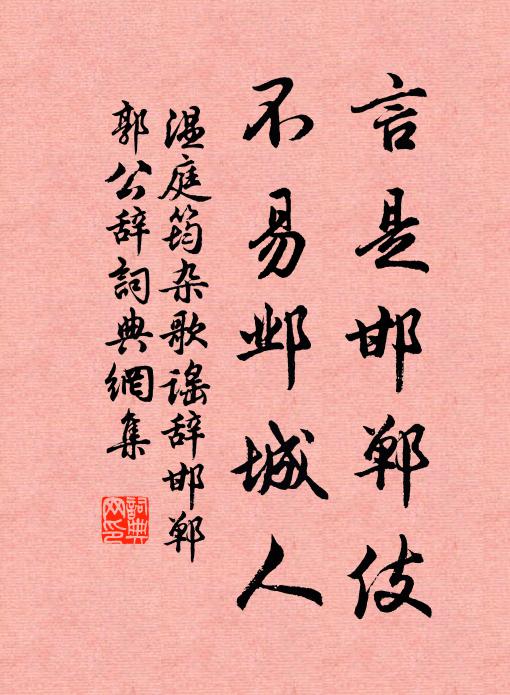 言是邯郸伎
不易邺城人
温庭筠杂歌谣辞邯郸
郭公辞词典網集
詞典
网印